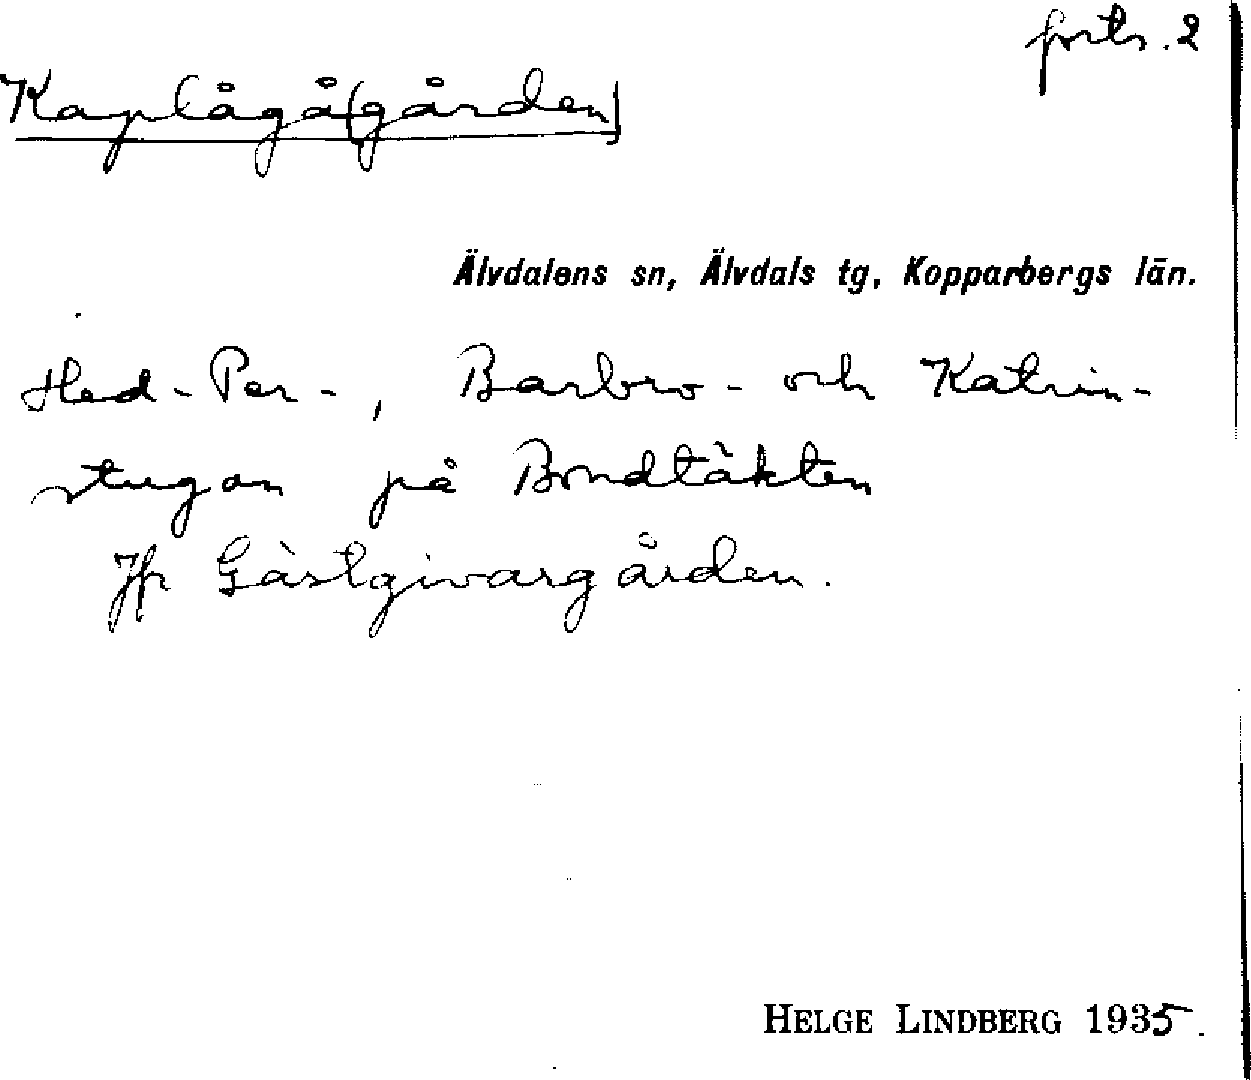 forts. 2
Kaplågå(gården)
Älvdalens sn, Älvdals tg, Kopparbergs län.
Hed-Per-, Barbro- och Katrin-
stugan på Bondtäkten
Jfr Gästgivargården.
HELGE LINDBERG 1935.